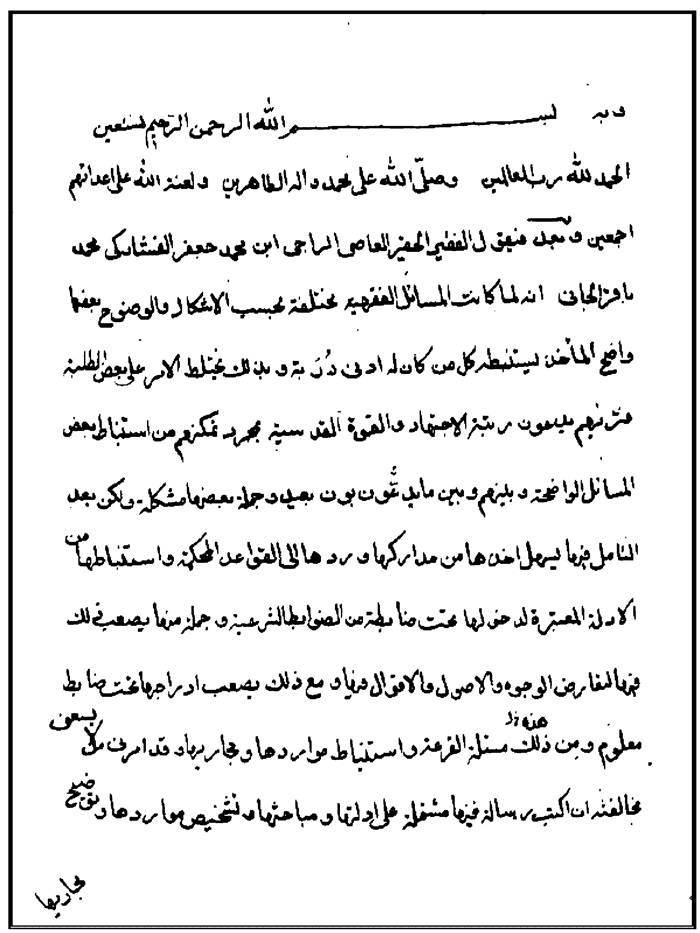 وبه بســـــــم الله الرحمن الرحیم نستعین
الحمد لله رب العالمین وصلّی الله علی محمد واله الطاهرین ولعنة الله علی اعدائهم
اجمعین وبعد فیقول الفقیر الحقیر العاصی الراجی ابن محمد جعفر الفشارکی محمد
باقر الجانی انه لما کانت المسائل الفقهیه مختلفة بحسب الاشکال والوضوح بعضها
واضح المأخذ یستنبطه کل من کان له ادنی دُرَبة وبذلک یختلط الامر علی بعض الطلبة
فتریهم یدعون رتبة الاجتهاد والقوة القدسیة بمجرد تمکنهم من استنباط بعض
المسائل الواضحة وبینهم وبین ما یدعُّون بون بعید وجملة بعضها مشکلة ولکن بعد
التامل فیها یسهل اخذها من مدارکها وردها الی القواعد المحکمة واستنباطها من
الادلة المعتبرة لدخولها تحت ضابطة من الضوابط الشرعیة وجملة منها یصعب ذلک
فیها لتعارض الوجوه والاصول والاقوال فیها ومع ذلک یصعب ادراجها تحت ضابط
معلوم ومن ذلک هذه مسئلة القرعة واستنباط مواردها ومجاریها وقد امرنی من لا یسعنی
مخالفته ان اکتب رسالة فیها مشتملة علی ادلتها ومباحثها وتشخیص مواردها وتوضیح
مجاریها